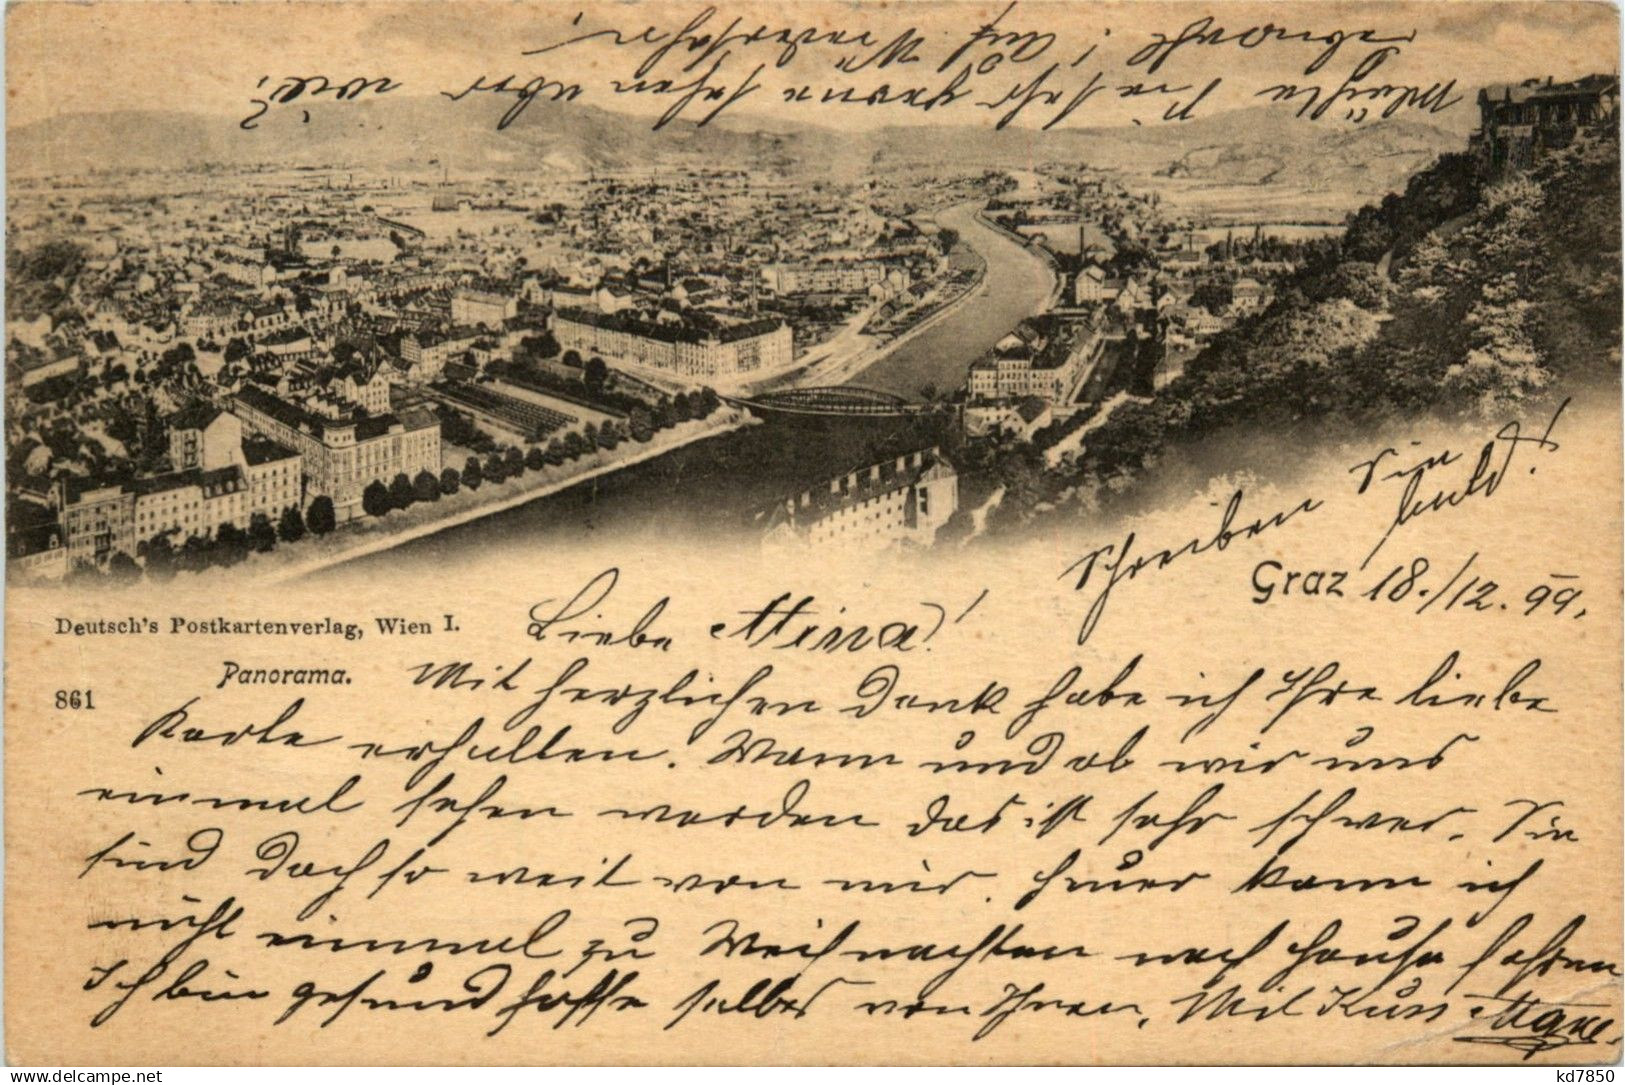 Schreiben Sie
bald!
Graz 18./12. 99.
Deutsch's Postkartenverlag, Wien I.
Liebe Mina!
Panorama.
861
Mit herzlichen Dank habe ich Ihre liebe
Karte erhalten. Wann und ob wir uns
einmal sehen werden das ist sehr schwer. Sie
sind doch so weit von mir. Heuer kann ich
nicht einmal zu Weihnachten nach Hause fahren
Ich bin gesund hoffe selbes von Ihnen. Mit Kuss
Möchte Sie sehr gerne sehen aber wie?
! Auf Wiedersehn
kd7850